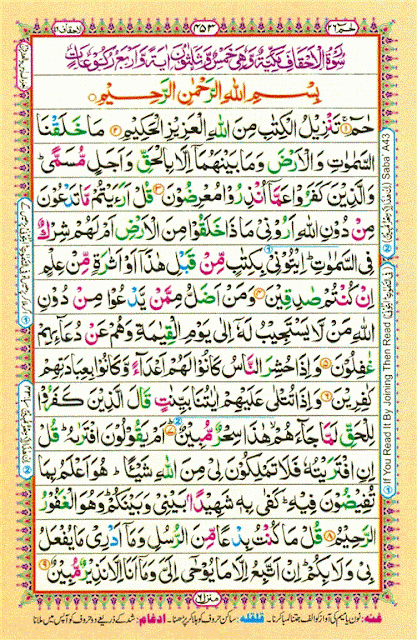 حٰمٓ ٢٦
٤٥٣
الاحقاف ٤٦
سُوْرَةُ الْاَحْقَافِ مَكِّيَّةٌ وَّهِيَ خَمْسٌ وَّثَلٰثُوْنَ اٰيَةً وَّاَرْبَعُ رُكُوْعَاتٍ
بِسْمِ اللهِ الرَّحْمٰنِ الرَّحِيْمِ
حٰمٓ ۝١ تَنْزِيْلُ الْكِتٰبِ مِنَ اللهِ الْعَزِيْزِ الْحَكِيْمِ ۝٢ مَا خَلَقْنَا
السَّمٰوٰتِ وَالْاَرْضَ وَمَا بَيْنَهُمَاۤ اِلَّا بِالْحَقِّ وَاَجَلٍ مُّسَمًّىؕ
وَالَّذِيْنَ كَفَرُوْا عَمَّاۤ اُنْذِرُوْا مُعْرِضُوْنَ ۝٣ قُلْ اَرَءَيْتُمْ مَّا تَدْعُوْنَ
مِنْ دُوْنِ اللهِ اَرُوْنِيْ مَاذَا خَلَقُوْا مِنَ الْاَرْضِ اَمْ لَهُمْ شِرْكٌ
فِي السَّمٰوٰتِؕ اِيْتُوْنِيْ بِكِتٰبٍ مِّنْ قَبْلِ هٰذَاۤ اَوْ اَثٰرَةٍ مِّنْ عِلْمٍ
اِنْ كُنْتُمْ صٰدِقِيْنَ ۝٤ وَمَنْ اَضَلُّ مِمَّنْ يَّدْعُوْا مِنْ دُوْنِ
اللهِ مَنْ لَّا يَسْتَجِيْبُ لَهٗۤ اِلٰى يَوْمِ الْقِيٰمَةِ وَهُمْ عَنْ دُعَآئِهِمْ
غٰفِلُوْنَ ۝٥ وَاِذَا حُشِرَ النَّاسُ كَانُوْا لَهُمْ اَعْدَآءً وَّكَانُوْا بِعِبَادَتِهِمْ
كٰفِرِيْنَ ۝٦ وَاِذَا تُتْلٰى عَلَيْهِمْ اٰيٰتُنَا بَيِّنٰتٍ قَالَ الَّذِيْنَ كَفَرُوْا
لِلْحَقِّ لَمَّا جَآءَهُمْ هٰذَا سِحْرٌ مُّبِيْنٌ ۝٧ اَمْ يَقُوْلُوْنَ افْتَرٰىهُؕ قُلْ
اِنِ افْتَرَيْتُهٗ فَلَا تَمْلِكُوْنَ لِيْ مِنَ اللهِ شَيْـًٔاؕ هُوَ اَعْلَمُ بِمَا
تُفِيْضُوْنَ فِيْهِؕ كَفٰى بِهٖ شَهِيْدًۢا بَيْنِيْ وَبَيْنَكُمْؕ وَهُوَ الْغَفُوْرُ
الرَّحِيْمُ ۝٨ قُلْ مَا كُنْتُ بِدْعًا مِّنَ الرُّسُلِ وَمَاۤ اَدْرِيْ مَا يُفْعَلُ
بِيْ وَلَا بِكُمْؕ اِنْ اَتَّبِعُ اِلَّا مَا يُوْحٰۤى اِلَيَّ وَمَاۤ اَنَا اِلَّا نَذِيْرٌ مُّبِيْنٌ ۝٩
Saba' A43
If You Read It By Joining Then Read
منزل ٦
غنہ: نون یا میم کی آواز کو الف جتنا لمبا کرنا۔ قلقلہ: ساکن حروف کو ہلا کر پڑھنا۔ ادغام: شد کے ذریعے دو حروف کو آپس میں ملانا